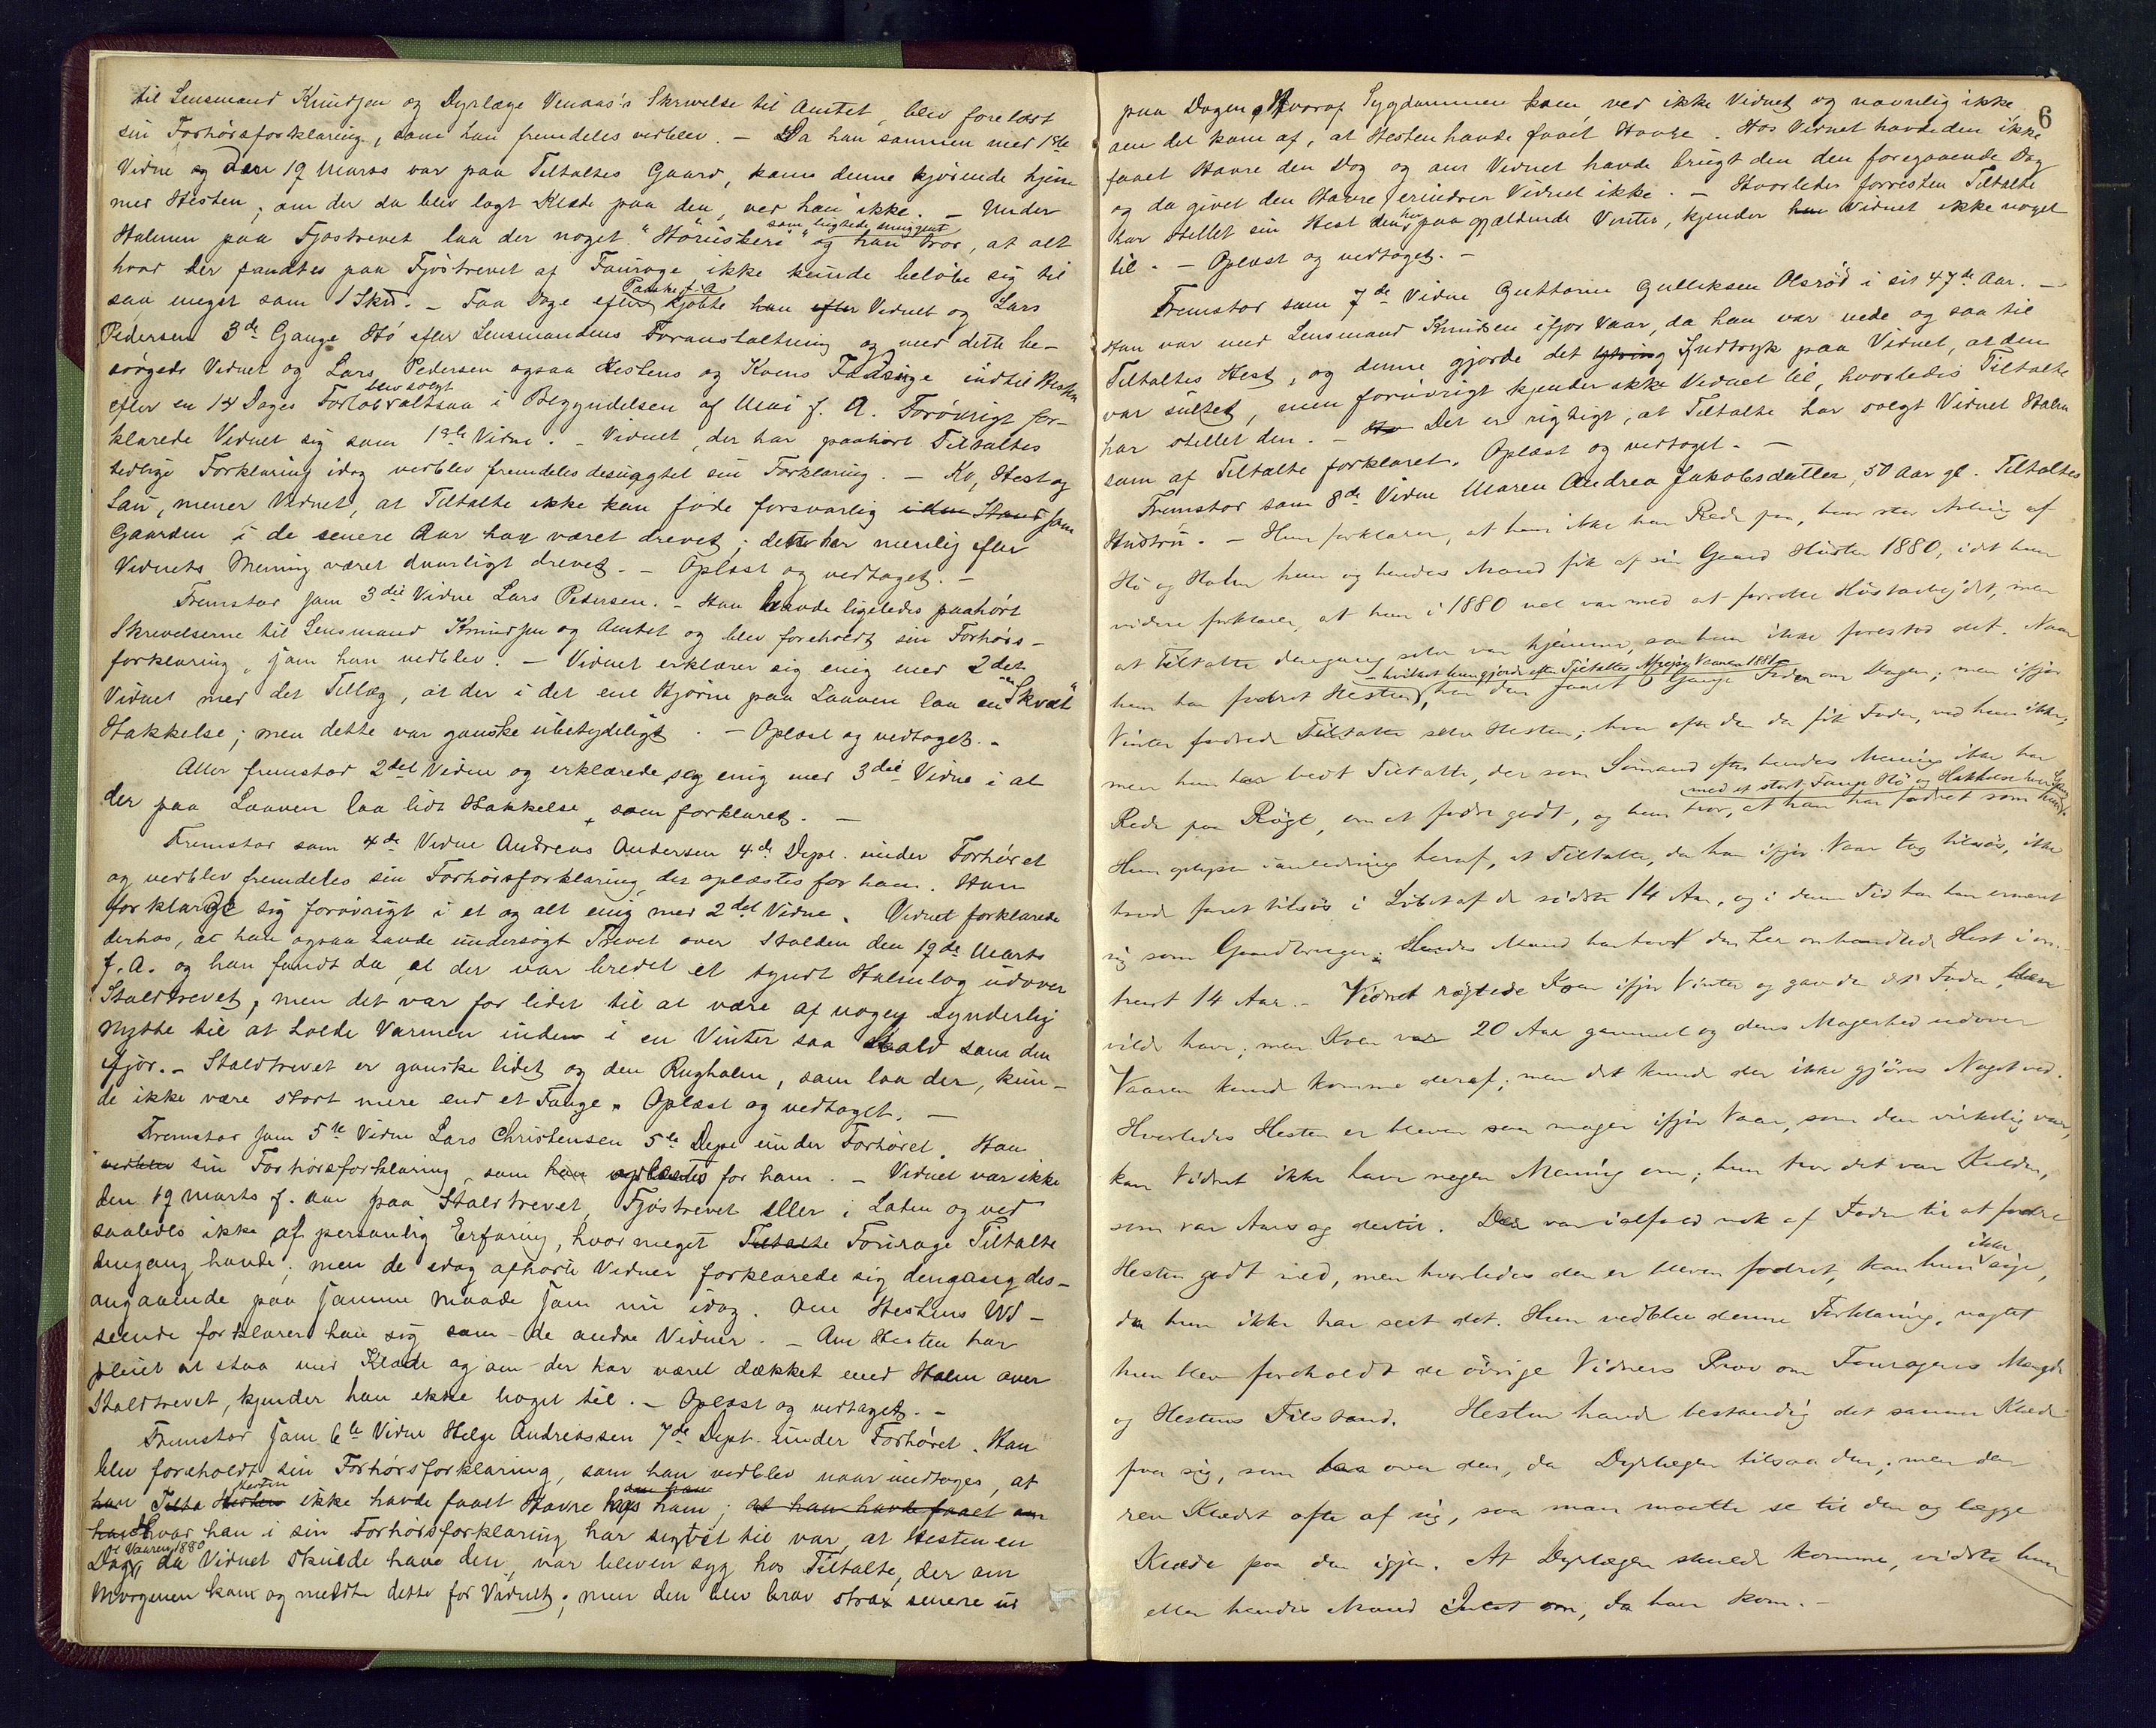 til Lensmand Knudsen og Dyrlæge Venaas's Skrivelse til Amtet, blev forelæst
sin Forhørsforklaring, som han fremdeles vedblev. – Da han sammen med 1ste
Vidne og den 19 Marts var paa Tiltaltes Gaard, kom denne kjørende hjem
med Hesten; om der da blev lagt Klæde paa den, ved han ikke. – Under
som lugtede muggent
Halmen paa Fjøstrevet laa der noget "Høriskers" og han tror, at alt
hvad der fandtes paa Fjøstrevet af Fourage ikke kunde beløbe sig til
Paaske f. A
saa meget som 1 Skd. – Faa Dage efter kjøbte han efter Vidnet og Lars
Pedersen 3de Gange Hø efter Lensmandens Foranstaltning og med dette be-
sørgede Vidnet og Lars Pedersen ogsaa Hestens og Koens Fodring indtil Hesten
blev solgt
efter en 14 Dages Forløb altsaa i Begyndelsen af Mai f. A. Forøvrigt for-
klarede Vidnet sig som 1ste Vidne. – Vidnet, der har paahørt Tiltaltes
sedlige Forklaring idag vedblev fremdeles desuagtet sin Forklaring. – Ko, Hest og
Sau, mener Vidnet, at Tiltalte ikke kan føde forsvarlig i den Stand som
Gaarden i de senere Aar har været drevet; dette har nemlig efter
Vidnets Mening været daarligt drevet. – Oplæst og vedtaget. –
Fremstod som 3die Vidne Lars Pedersen. – Han havde ligeledes paahørt
Skrivelserne til Lensmand Knudsen og Amtet og blev foreholdt sin Forhørs-
forklaring, som han vedblev. – Vidnet erklærer sig enig med 2det
Vidnet med det Tillæg, at der i det ene Hjørne paa Laaven laa en "Skvæt"
Hakkelse; men dette var ganske ubetydeligt. – Oplæst og vedtaget. –
Atter fremstod 2det Vidne og erklærede sig enig med 3die Vidne i at
der paa Laaven laa lidt Hakkelse, som forklaret. –
Fremstod som 4de Vidne Andreas Andersen 4de Dept. under Forhøret
og vedblev fremdeles sin Forhørsforklaring, der oplæstes for ham. Han
forklarede sig forøvrigt i et og alt enig med 2det Vidne. Vidnet forklarede
derhos, at han ogsaa havde undersøgt Trevet over Stalden den 19de Marts
f. A. og han fandt da, at der var bredet et tyndt Halmlag udover
Staldtrevet; men det var for lidet til at være af nogen synderlig
Nytte til at holde Varmen inden i en Vinter saa kold som den
ifjor. – Staldtrevet er ganske lidet og den Rughalm, som laa der, kun-
de ikke være stort mere end et Fange. Oplæst og vedtaget. –
Fremstod som 5te Vidne Lars Christensen 5te Dept under Forhøret. Han
vedblev sin Forhørsforklaring, som han oplæstes for ham. – Vidnet var ikke
den 19 Marts f. Aar paa Staldtrevet, Fjøstrevet eller i Laden og ved
saaledes ikke af personlig Erfaring, hvor meget Tiltalte Fourage Tiltalte
dengang havde; men de idag afhørte Vidner forklarede sig dengang des-
angaaende paa samme Maade som nu idag. Om Hestens Ud-
seende forklarer han sig som de andre Vidner. – Om Hesten har
pleiet at staa med Klæde og om der har været dækket med Halm over
Staldtrevet, kjender han ikke noget til. – Oplæst og vedtaget. –
Fremstod som 6te Vidne Helge Andreassen 7de Dept. under Forhøret. Han
blev foreholdt sin Forhørsforklaring, som han vedblev naar undtages, at
Hesten
han Tilta Hesten ikke havde faaet Havre hos ham; at han havde faaet om
han hvad han i sin Forhørsforklaring har sigtet til var, at Hesten en
i Vaaren 1880
Dag, da Vidnet skulde have den, var bleven syg hos Tiltalte, der om
Morgenen kom og meldte dette for Vidnet; men den blev brav strax senere ud
6
paa Dagen. Hvoraf Sygdommen kom, ved ikke Vidnet og navnlig ikke
om det kom af, at Hesten havde faaet Havre. Hos Vidnet havde den ikke
faaet Havre den Dag og om Vidnet havde brugt den den foregaaende Dag
og da givet den Havre erindrer Vidnet ikke. – Hvorledes forresten Tiltalte
har stellet sin Hest den her paagjældende Vinter, kjender han Vidnet ikke noget
til. – Oplæst og vedtaget. –
Fremstod som 7de Vidne Guttorm Gulliksen Alsrød i sit 47de Aar. –
Han var med Lensmand Knudsen ifjor Vaar, da han var nede og saa til
Tiltaltes Hest, og denne gjorde det Indtryk paa Vidnet, at den
var sultet, men forøvrigt kjender ikke Vidnet til, hvorledes Tiltalte
har stellet den. – Det er rigtigt, at Tiltalte har solgt Vidnet Halm
som af Tiltalte forklaret. Oplæst og vedtaget. –
Fremstod som 8de Vidne Maren Andrea Jakobsdatter, 50 Aar gl. Tiltaltes
Hustru. – Hun forklarer, at hun ikke har Rede paa, hvor stor Avling af
Hø og Halm hun og hendes Mand fik af sin Gaard Høsten 1880, idet hun
videre forklarer, at hun i 1880 vel var med at forrette Høstarbejdet, men
at Tiltalte dengang selv var hjemme, saa hun ikke forestod det. Naar
hvilket hun gjorde efter Tiltaltes Afrejse Vaaren 1881
hun har fodret Hesten, har den faaet 6 Gange Foder om Dagen; men ifjor
Vinter fodrede Tiltalte selv Hesten; hvor ofte den da fik Foder, ved hun ikke;
men hun har bedt Tiltalte, der som Sømand efter hendes Mening ikke har
med et stort Fange Hø og Hakkelse hver Gang
Rede paa Røgt, om at fodre godt, og hun tror, at han har fodret som hun.
Hun oplyser i Anledning heraf, at Tiltalte, da han ifjor Vaar tog tilsøs, ikke
havde faret tilsøs i Løbet af de sidste 14 Aar, og i denne Tid har han ernæret
sig som Gaardbruger. Hendes Mand har havt den her omhandlede Hest i om-
trent 14 Aar. – Vidnet røgtede Koen ifjor Vinter og gav den det Foder, den
vilde have; men Koen var 20 Aar gammel og dens Magerhed udover
Vaaren kunde komme deraf; men det kunde der ikke gjøres Noget ved.
Hvorledes Hesten er bleven saa mager ifjor Vaar, som den virkelig var,
kan Vidnet ikke have nogen Mening om; hun tror det var Kulden,
som var Aarsag dertil. Der var ialfald nok af Foder til at fodre
ikke
Hesten godt med, men hvorledes den er bleven fodret, kan hun sige,
da hun ikke har seet det. Hun vedblev denne Forklaring, uagtet
hun blev foreholdt de øvrige Vidners Prov om Fouragens Mængde
og Hestens Tilstand. Hesten havde bestandig det samme Klæde
paa sig, som laa over den, da Dyrlægen tilsaa den; men den
rev Klædet ofte af sig, saa man maatte se til den og lægge
Klæde paa den igjen. At Dyrlægen skulde komme, vidste hun
eller hendes Mand Intet om, da han kom. –